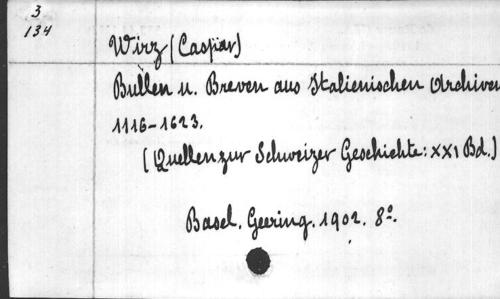 3
134
Wirz (Caspar)
Bullen u. Breven aus Italienischen Archiven
1116-1623.
(Quellen zur Schweizer Geschichte: XXI Bd.)
Basel. Geering. 1902. 8º.